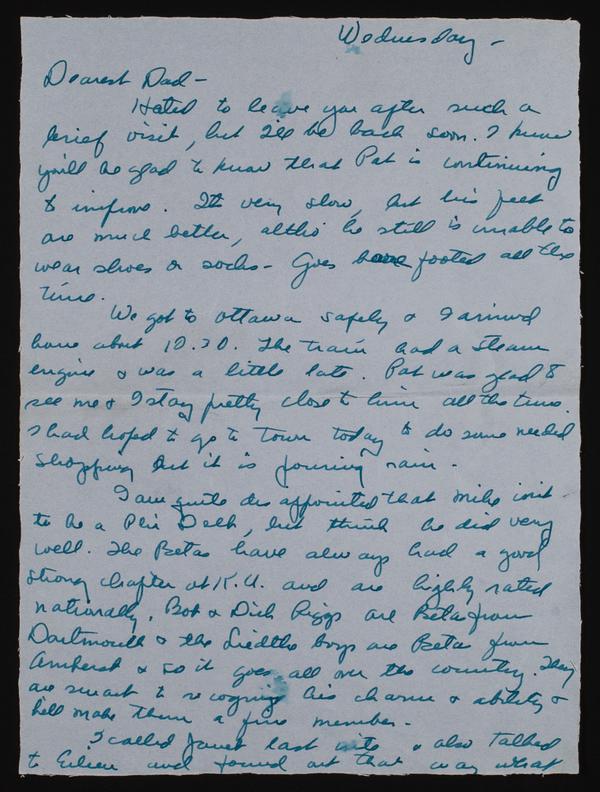 Wednesday -
Dearest Dad -
Hated to leave you after such a
brief visit, but I'll be back soon. I know
you'll be glad to know that Pat is continuing
to improve. It's very slow, but his feet
are much better, altho he still is unable to
wear shoes or socks - Goes bare footed all the
time.
We got to Ottawa safely & I arrived
home about 10:30. The train had a steam
engine & was a little late. Pat was glad to
see me & I stay pretty close to him all the time.
I had hoped to go to town today to do some needed
shopping but it is pouring rain.
I am quite disappointed that Mike isn't
to be a Phi Delt, but think he did very
well. The Betas have always had a good
strong chapter at K.U. and are highly rated
nationally. Bob & Dick Riggs are Betas from
Dartmouth & the Liedtke boys are Betas from
Amherst & so it goes all over the country. They
are smart to recognize his charm & ability &
he'll make them a fine member.
I called Janet last nite & also talked
to Eileen and found out that was what